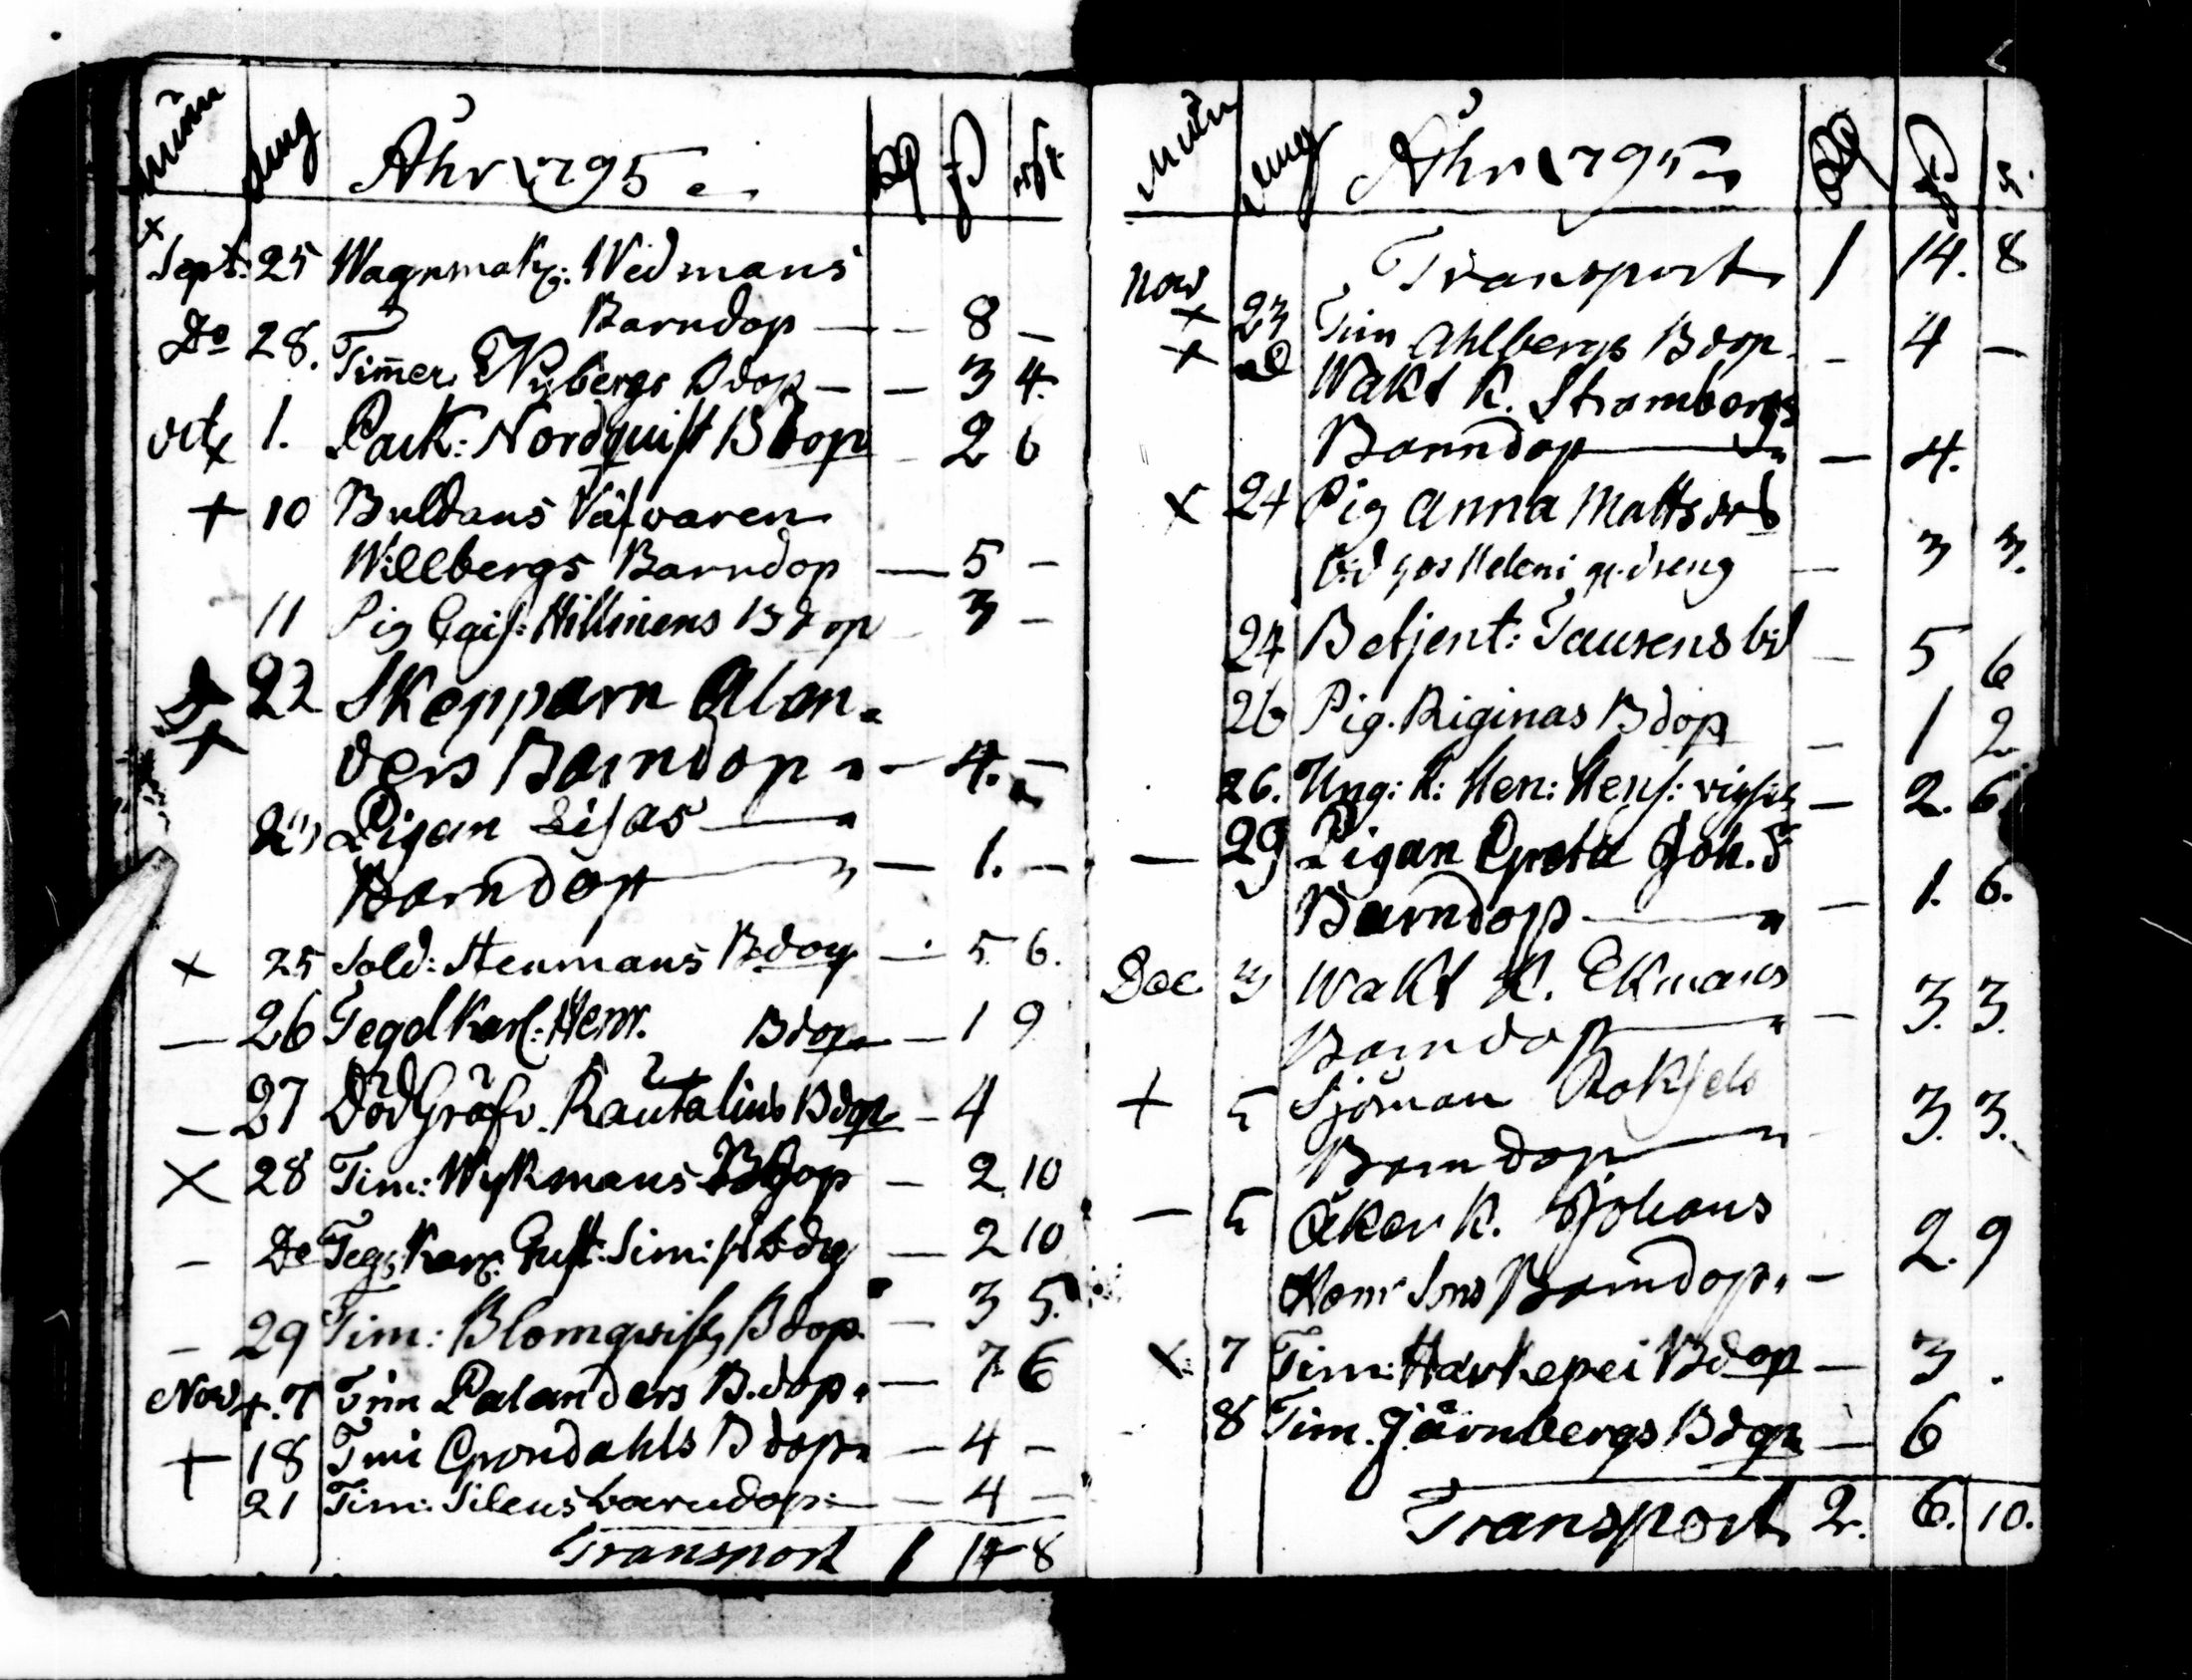 Åhr 1795
Sept: 25 Wagnmak: Wedmans
Barndop — — 8 —
Do 28. Timer. Nybergs Bdop — — 3 4.
oct 1. Pack: Nordquist Bdop — 2 6
+ 10 Buldans Väfvaren
Willbergs Barndop — 5 —
11 Pig Cais: Hillinens Bdop — 3 —
+ 22 Skepparn Alan-
ders Barndop — 4. —
Pigan Lisas —
Barndop — — 1. —
x 25 Sold: Stenmans Bdop — 5 6.
— 26 Tegel Karl: Henr. Bdop — 1 9
— 27 Död Gräfv. Rautalins Bdop — 4
x 28 Tim: Wykmans Bdop — 2. 10
— Do Teg. Kar: Gust: Sim: s Bdop — 2 10
— 29 Tim: Blomqvist Bdop — 3 5.
Nov +. 7 Tim Palanders B.dop — 7 6
+ 18 Tim Grondahls Bdop — 4 —
21 Tim: Silens barndop: — — 4 —
Transport 1 14 8
Åhr 1795
Transport 1 14. 8
Nov x 23 Tim Ahlbergs Bdop — 4 —
+ Wakt K. Strombergs
Barndop — — 4.
x 24 Pig Anna Matts
— 3 3.
24 Betjent: Taurens — 5 6
26 Pig. Riginas Bdop — 1 2
26. Ung: K: Hen: Hens: — 2. 6
— 29 Pigan Greta Joh. D
Barndop — — 1. 6.
Dec 3 Wakt K. Ekmans
Barndop — — 3. 3.
+ 5 Sjöman
Barndop — 3. 3.
— 5 Åker K. Johans
Henr Sons Barndop. — 2. 9
x. 7 Tim: Harkepei Bdop — 3 .
8 Tim. Järnbergs Bdop — 6
Transport 2. 6. 10.